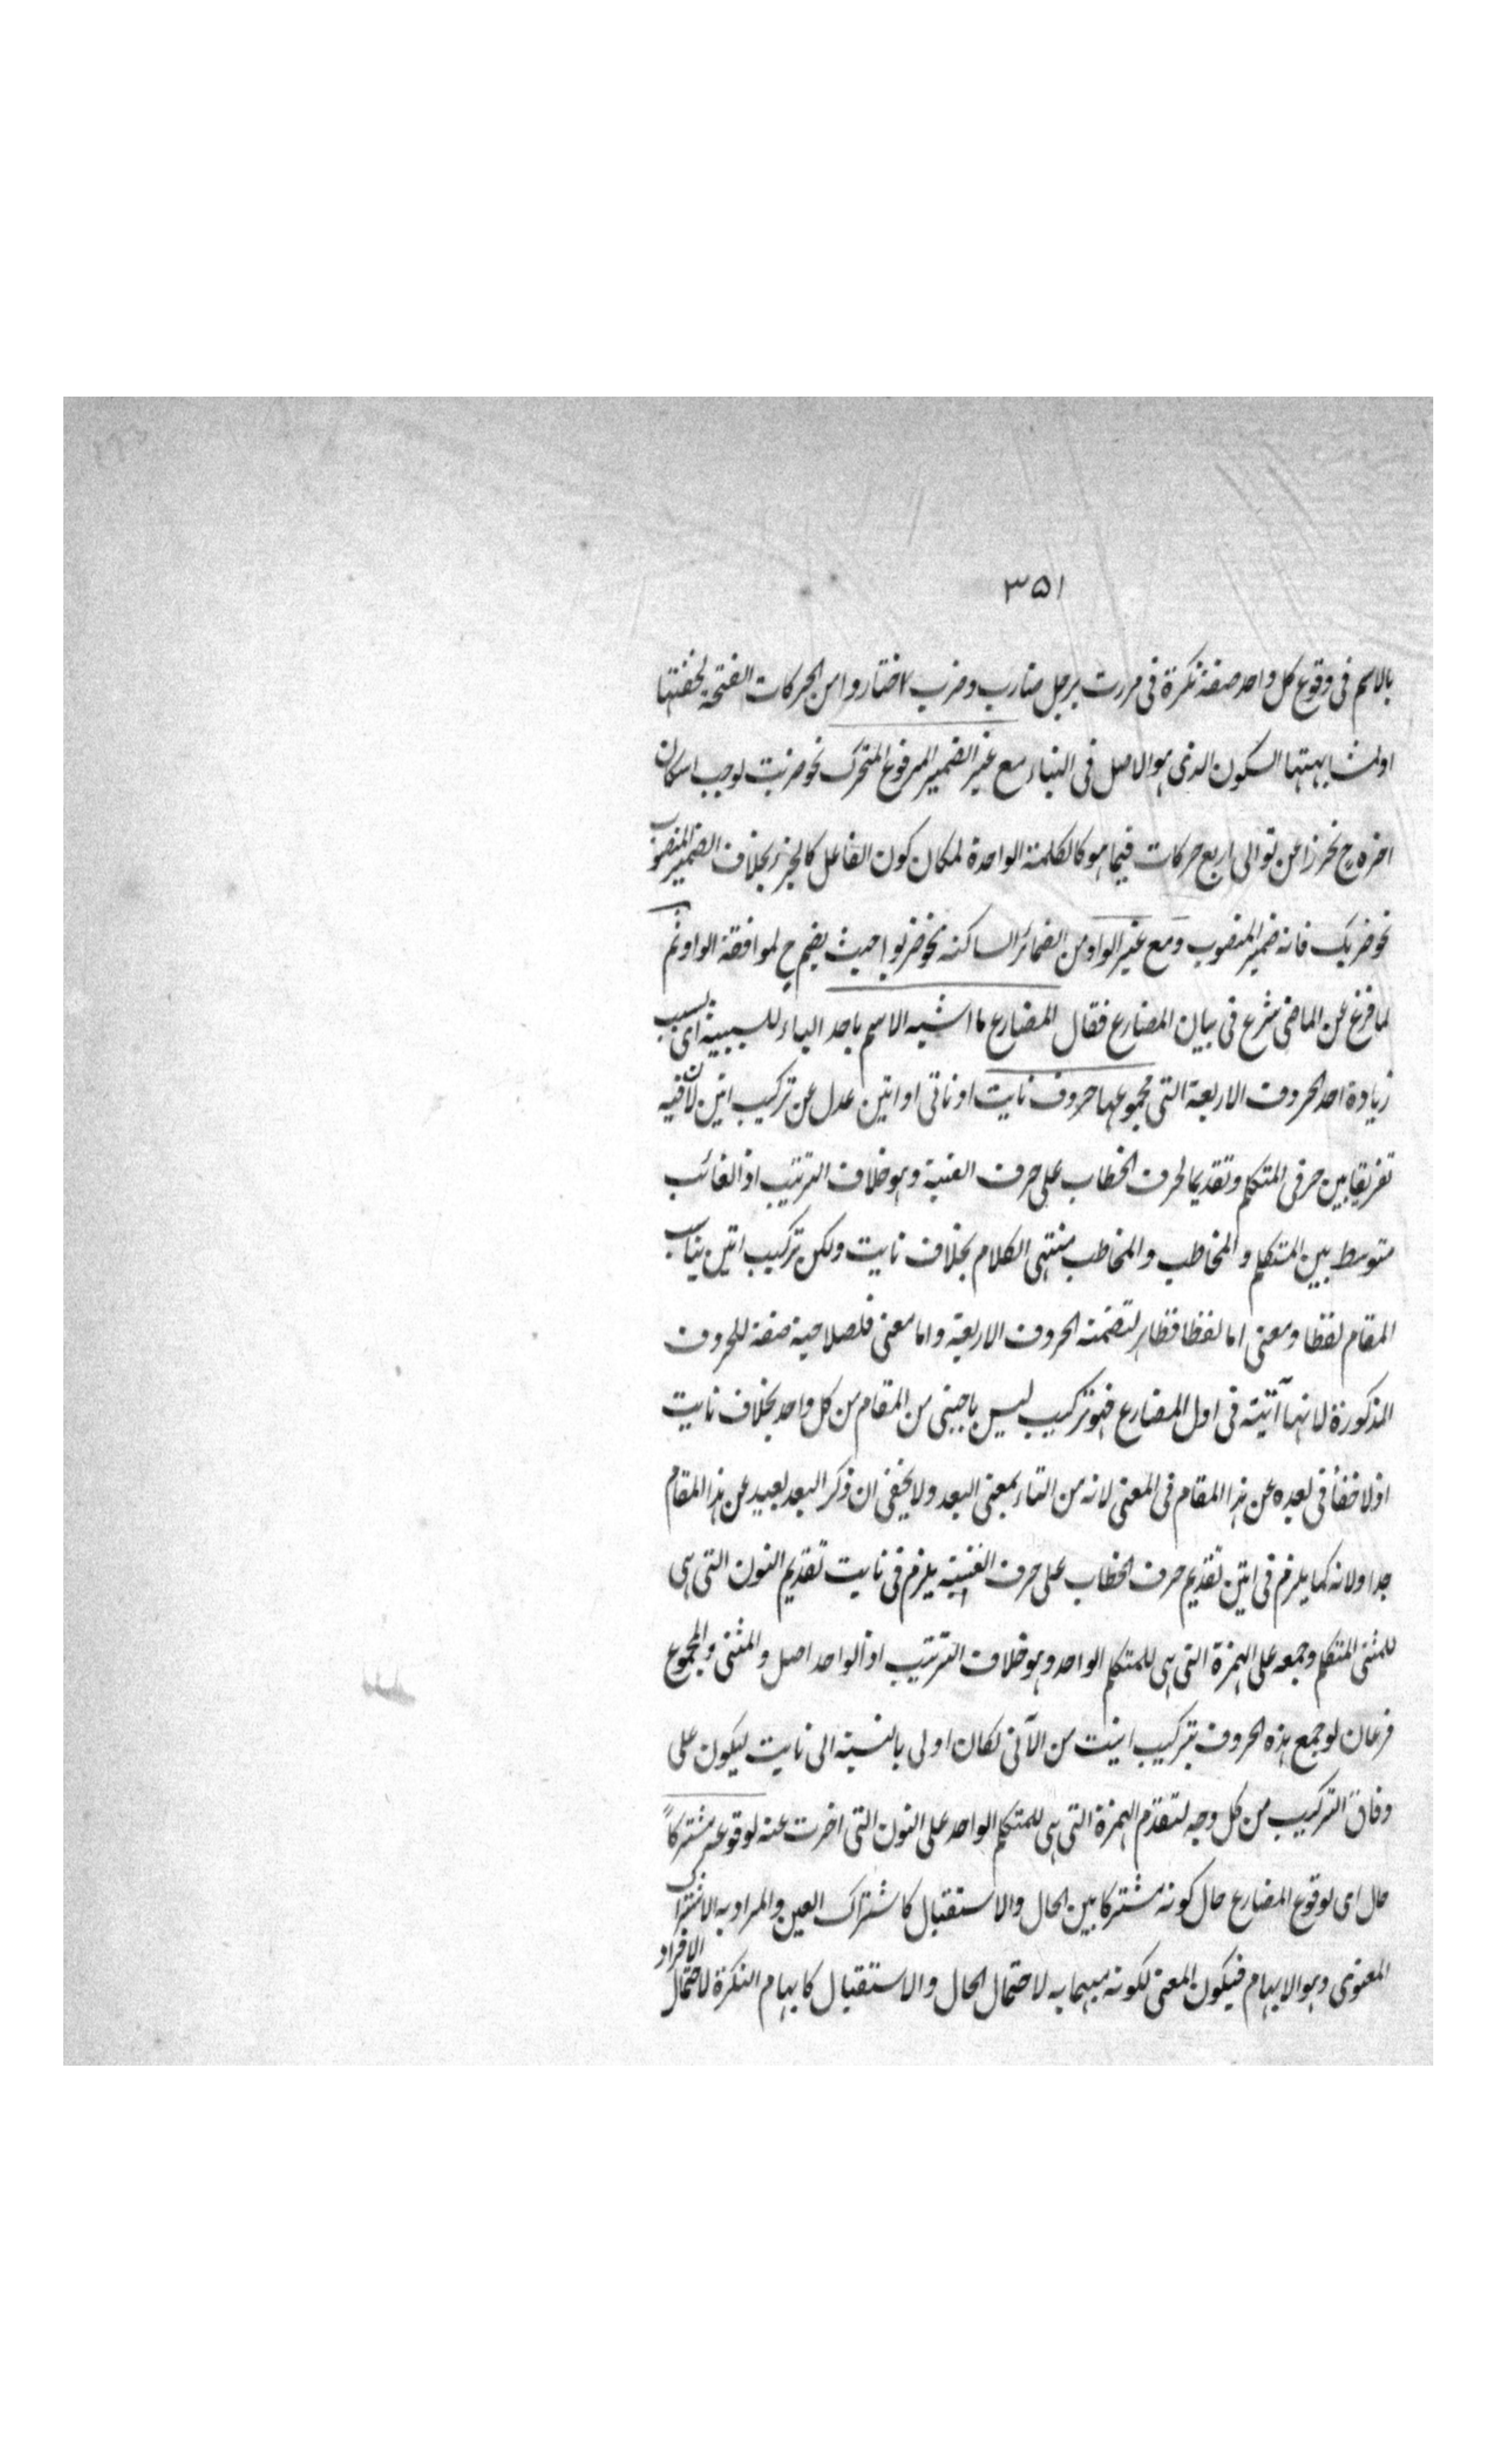 ٣٥١
بالاسم فى وقوع كل واحد صفة نكرة فى مررت برجل ضارب وضرب اختاروا من الحركات الفتحة لخفتها
او لمشابهتها السكون الذى هو الاصل فى البناء مع غير الضمير المرفوع المتحرك نحو ضربت لوجب اسكان
اخره ح تحرزا عن توالى اربع حركات فيما هو كالكلمة الواحدة لمكان كون الفاعل كالجزء بخلاف الضمير المنصوب
نحو ضربك فانه ضمير المنصوب ومع غير الواو من الضمائر الساكنة نحو ضربوا حيث يضم ح لموافقة الواو ثم
لما فرغ عن الماضى شرع فى بيان المضارع فقال المضارع ما اشبه الاسم باحد الباء للسببية اى بسبب
زيادة احد الحروف الاربعة التى مجموعها حروف نايت او ناتى او اتين عدل عن تركيب اتين لان فيه
تفريقا بين حرفى المتكلم وتقديما لحرف الخطاب على حرف الغيبة وهو خلاف الترتيب اذ الغائب
متوسط بين المتكلم والمخاطب والمخاطب منتهى الكلام بخلاف نايت ولكن تركيب اتين يناسب
المقام لفظا ومعنى اما لفظا فظاهر لتضمنه الحروف الاربعة واما معنى فلصلاحية صفة للحروف
المذكورة لانها آتية فى اول المضارع فهو تركيب ليس باجنبى من المقام من كل واحد بخلاف نايت
اذ لا خفأ فى بعده عن هذا المقام فى المعنى لانه من النأء بمعنى البعد ولا يخفى ان ذكر البعد بعيد عن هذا المقام
جدا ولانه كما يلزم فى اتين تقديم حرف الخطاب على حرف الغيبة يلزم فى نايت تقديم النون التى هى
للمثنى المتكلم وجمعه على الهمزة التى هى للمتكلم الواحد وهو خلاف الترتيب اذ الواحد اصل والمثنى والمجموع
فرعان لو جمع هذه الحروف بتركيب انيت من الآنى لكان اولى بالنسبة الى نايت ليكون على
وفاق التركيب من كل وجه لتقدم الهمزة التى هى للمتكلم الواحد على النون التى اخرت عنه لوقوعه مشتركاً
حال اى لوقوع المضارع حال كونه مشتركا بين الحال والاستقبال كاشتراك العين والمراد به الاشتراك
المعنوى وهو الابهام فيكون المعنى لكونه مبهما به لاحتمال الحال والاستقبال كابهام النكرة لاحتمال الافراد